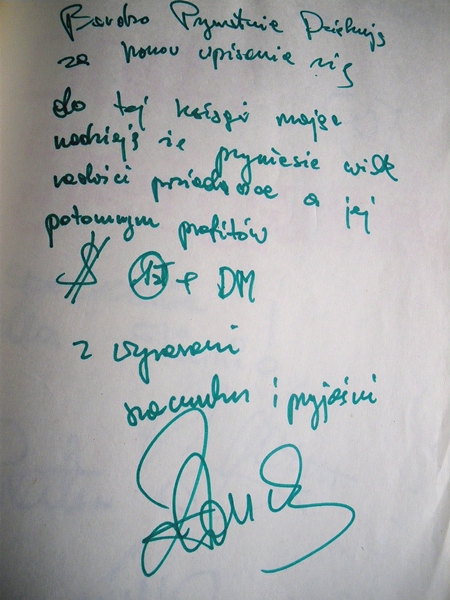 Bardzo Prywatnie Dziękuję
za honor wpisania się
do tej księgi mając
nadzieję że przyniesie wiele
radości posiadaczce a jej
potomnym profitów
$ + DM
z wyrazami
szacunku i przyjaźni